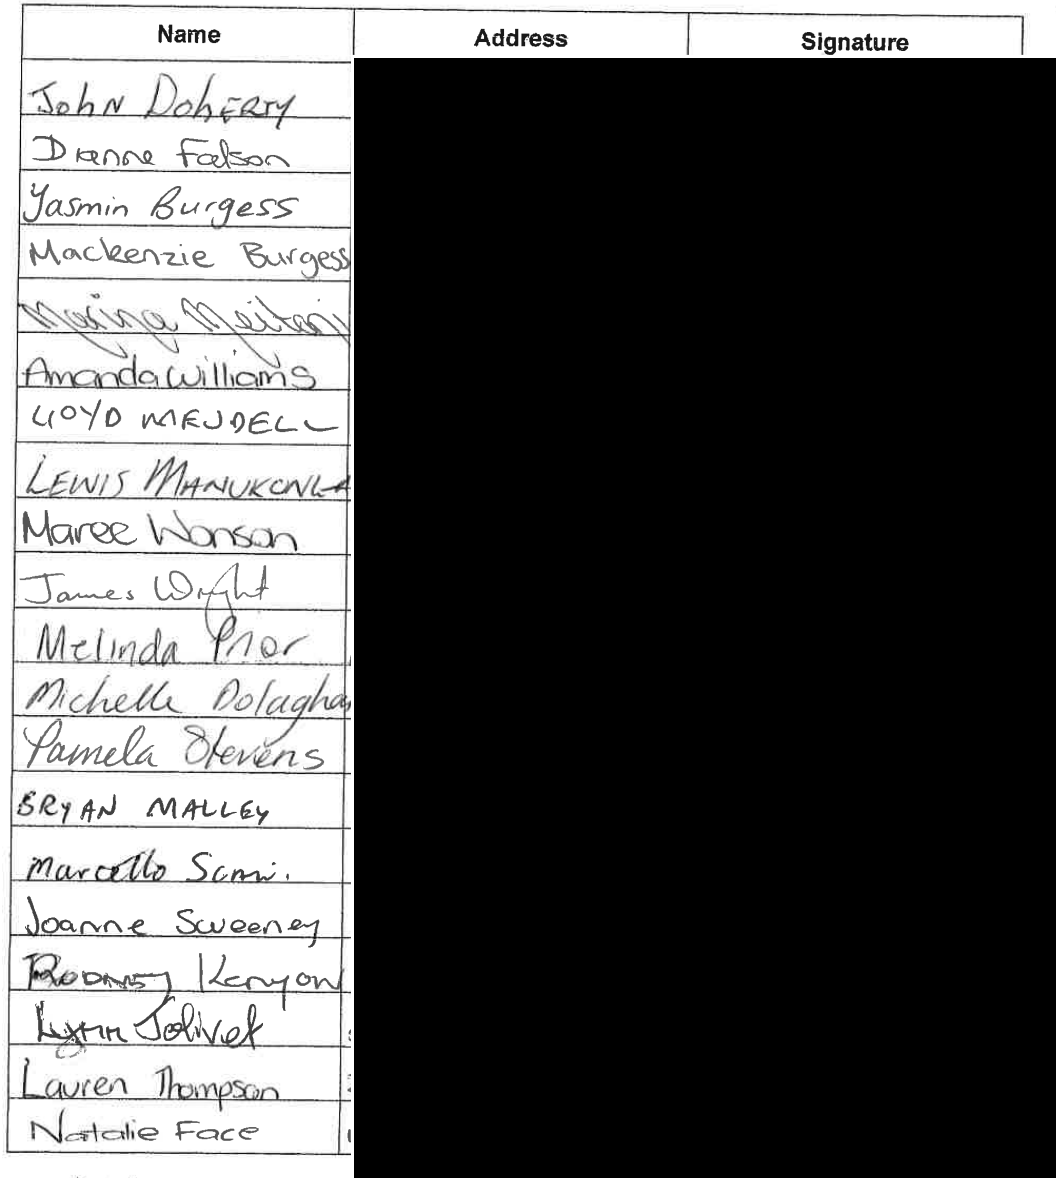 Name Address Signature
John Doherty
Dianne Falson
Yasmin Burgess
Mackenzie Burgess
Marina
Amanda Williams
LLOYD MENDELL
LEWIS
Maree Wonson
James Wright
Melinda Prior
Michelle Dolaghan
Pamela Stevens
BRYAN MALLEY
Marcello
Joanne Sweeney
RODNEY Kenyon
Lynn Jolivet
Lauren Thompson
Natalie Face